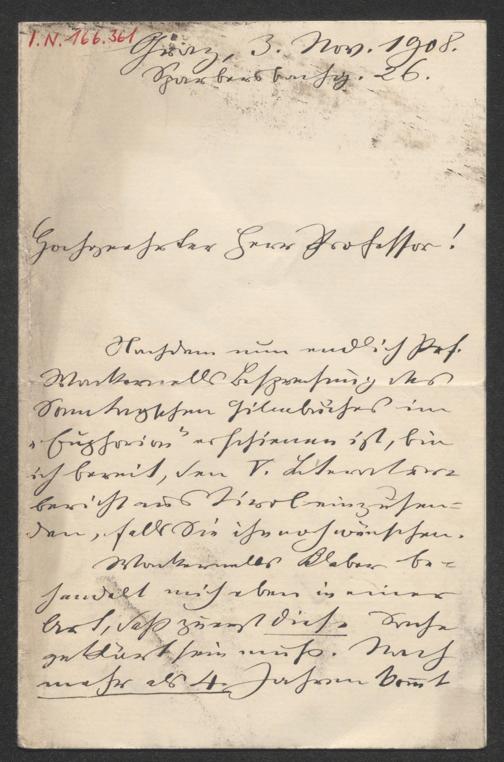 I.N. 166.361
Graz, 3. Nov. 1908.
Sparbersbachg. 26.
Hochgeehrter Herr Professor!
Nachdem nun endlich Prof.
Wackernells Besprechung des
Sonntagschen Gilmbuches im
„Euphorion" erschienen ist, bin
ich bereit, den V. Literatur-
bericht aus Tirol einzusen-
den, falls Sie ihn noch wünschen.
Wackernells Kleber be-
handelt mich eben in einer
Art, daß zuerst diese Sache
geklärt sein muß. Nach
mehr als 4 Jahren kommt